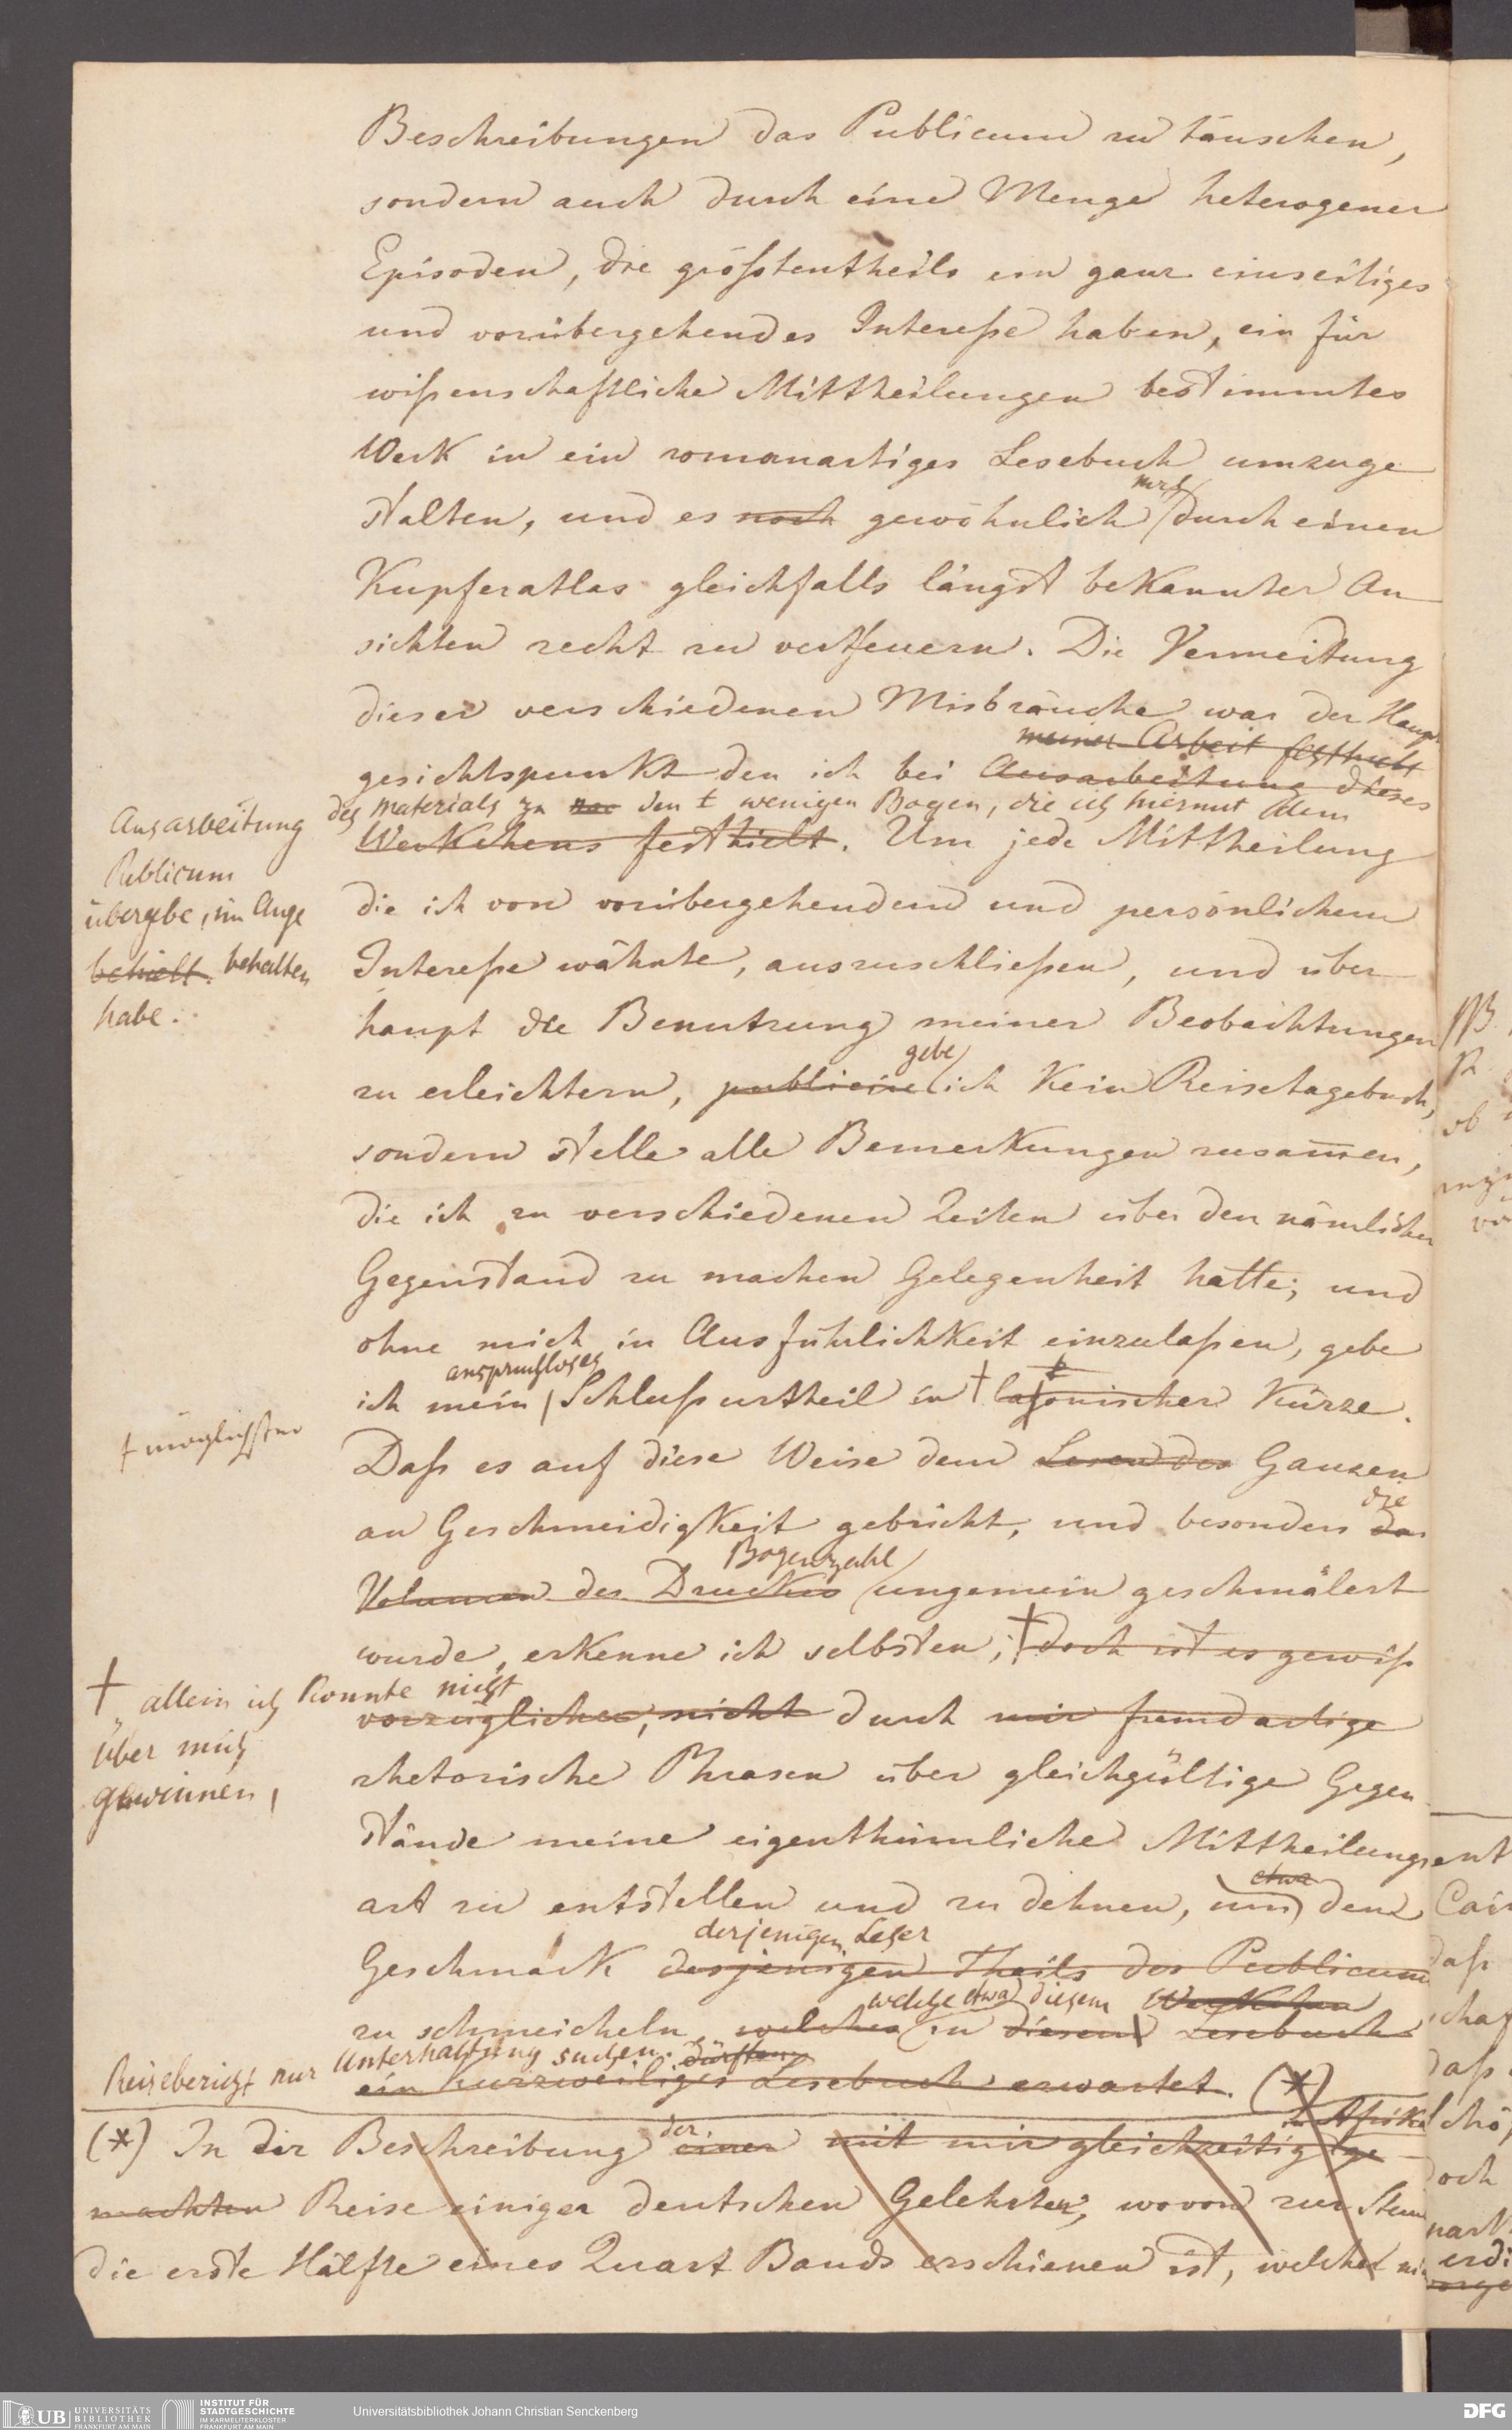 Beschreibungen das Publicum zu täuschen,
sondern auch durch eine Menge heterogener
Episoden, die größtentheils ein ganz einseitiges
und vorübergehendes Intereße haben, ein für
wißenschaftliche Mittheilungen bestimmtes
Werk in ein romanartiges Lesebuch umzuge
stalten, und es noch gewöhnlich durch einen
Kupferatlas gleichfalls längst bekannter An
sichten recht zu vertheuern. Die Vermeidung
dieser verschiedenen Misbräuche war der Haupt
meiner Arbeit festhielt
gesichtspunkt den ich bei Ausarbeitung dieses
Ausarbeitung des Materials zu den wenigen Bogen, die ich hiermit dem
Publicum
übergebe, im Auge
behielt. behalten
habe.
Werkchens festhielt. Um jede Mittheilung
die ich von vorübergehendem und persönlichem
Intereße wähnte, auszuschließen, und über
haupt die Benutzung meiner Beobachtungen
gebe
zu erleichtern, publicire ich kein Reisetagebuch,
sondern stelle alle Bemerkungen zusamen,
die ich zu verschiedenen Zeiten über den nämlichen
Gegenstand zu machen Gelegenheit hatte; und
ohne mich in Ausführlichkeit einzulaßen, gebe
anspruchloses
ich mein Schlußurtheil in † laconischer Kürze.
† möglichster
Daß es auf diese Weise dem Lesen des Ganzen
die
an Geschmeidigkeit gebricht, und besonders das
Bogenzahl
Volumen des Druckes ungemein geschmälert
wurde, erkenne ich selbsten; † doch ist es gewiß
† allein ich konnte nicht
über mich
gewinnen,
vorzüglicher, nicht durch mir fremdartige
rhetorische Phrasen über gleichgültige Gegen
stände meine eigenthümliche Mittheilungs
etwa
art zu entstellen und zu dehnen, um dem
derjenigen Leser
Geschmack desjenigen Theils des Publicums
welche etwa diesem Werkchen
zu schmeicheln, welcher in diesem Lesebuch
Reisebericht nur Unterhaltung suchen. dürften
ein kurzweiliges Lesebuch erwartet. (*)
der in Afrika
(*) In der Beschreibung einer mit mir gleichzeitig ge
machten Reise einiger deutschen Gelehrten, wovon zur Stun
die erste Hälfte eines Quart Bands erschienen ist, welcher
UB UNIVERSITÄTS
BIBLIOTHEK
FRANKFURT AM MAIN
INSTITUT FÜR
STADTGESCHICHTE
IM KARMELITERKLOSTER
FRANKFURT AM MAIN
Universitätsbibliothek Johann Christian Senckenberg
DFG